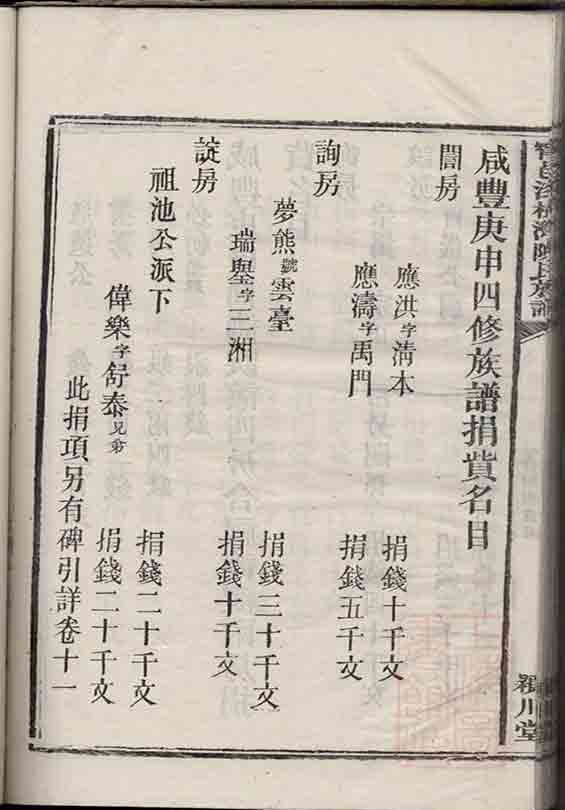 咸豐庚申四修族譜捐貲名目
誾房
應洪字淸本 捐錢十千文
應濤字禹門 捐錢五千文
詢房
夢熊號雲臺 捐錢三十千文
瑞璺字三湘 捐錢十千文
諚房
祖池公派下 捐錢二十千文
偉樂字舒泰兄弟 捐錢二十千文
此捐項另有碑引詳卷十一
陳氏族譜
潁川堂